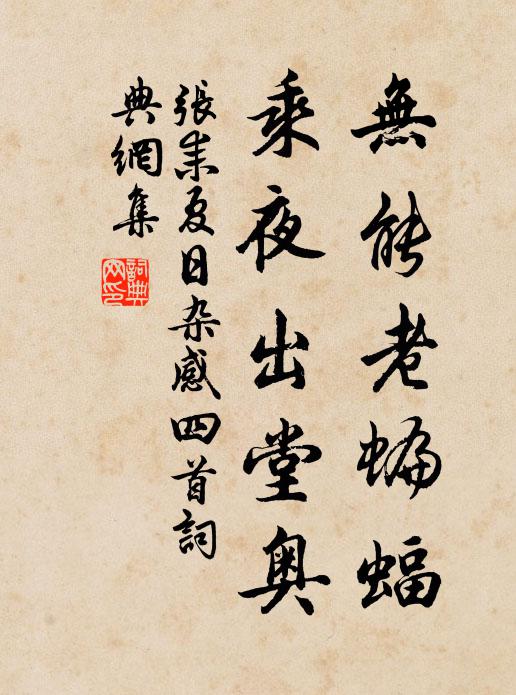 無能老蝙蝠
乘夜出堂奧
張耒夏日杂感四首詞
典網集
詞典
网印